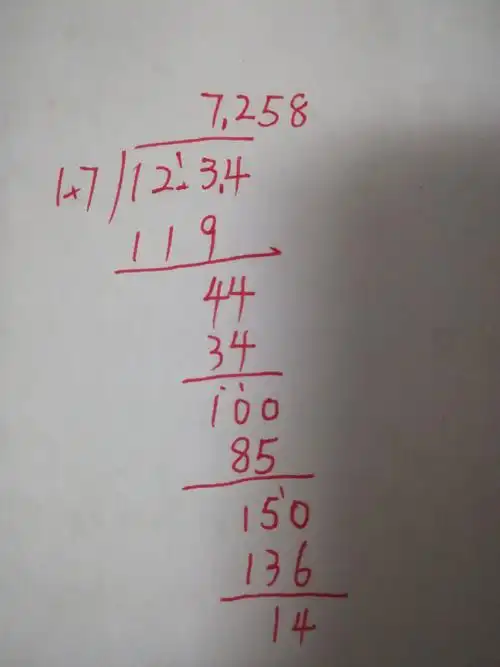 7.258
1.7)12.3.4
119
44
34
100
85
150
136
14